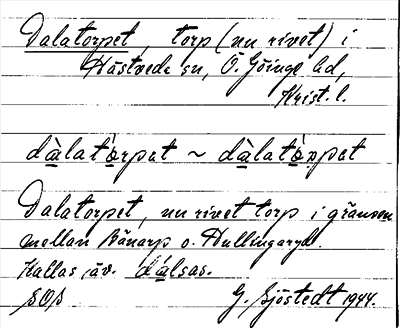 Dalatorpet, torp (nu rivet) i
Hästveda sn, Ö. Göinge hd,
Krist. l.
dàlatòrpet ~ dàlatòppet
Dalatorpet, nu rivet torp i gränsen
mellan Vänarp o. Hullingaryd.
Kallas äv. dálsas.
SOS G. Sjöstedt 1944.